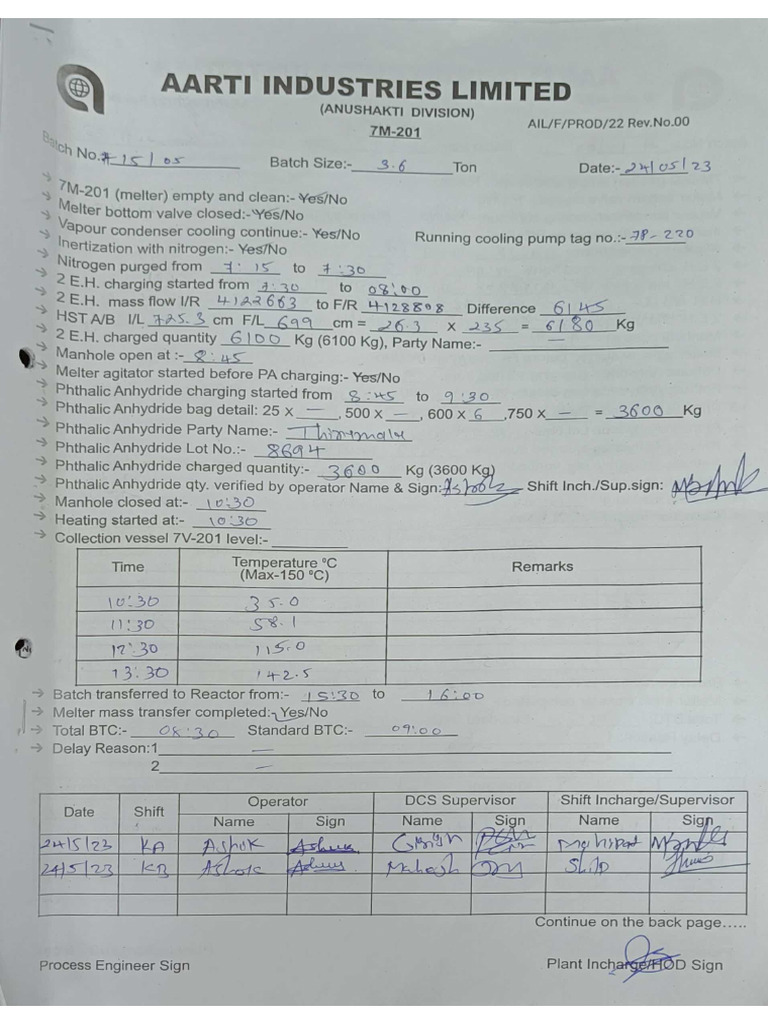 AARTI INDUSTRIES LIMITED
(ANUSHAKTI DIVISION)
7M-201
AIL/F/PROD/22 Rev.No.00
Batch No. 15/05 Batch Size:- 3.6 Ton Date:- 24/05/23
→ 7M-201 (melter) empty and clean:- Yes/No
→ Melter bottom valve closed:- Yes/No
→ Vapour condenser cooling continue:- Yes/No Running cooling pump tag no.:- 78-220
→ Inertization with nitrogen:- Yes/No
→ Nitrogen purged from 7:15 to 7:30
→ 2 E.H. charging started from 7:30 to 08:00
→ 2 E.H. mass flow I/R 4122663 to F/R 4128808 Difference 6145
→ HST A/B I/L 725.3 cm F/L 699 cm = 26.3 x 235 = 6180 Kg
→ 2 E.H. charged quantity 6100 Kg (6100 Kg), Party Name:- —
→ Manhole open at :- 8:45
→ Melter agitator started before PA charging:- Yes/No
→ Phthalic Anhydride charging started from 8:45 to 9:30
→ Phthalic Anhydride bag detail: 25 x —, 500 x —, 600 x 6, 750 x — = 3600 Kg
→ Phthalic Anhydride Party Name:- Thirumalai
→ Phthalic Anhydride Lot No.:- 8694
→ Phthalic Anhydride charged quantity:- 3600 Kg (3600 Kg)
→ Phthalic Anhydride qty. verified by operator Name & Sign: Ashok Shift Inch./Sup.sign:
→ Manhole closed at:- 10:30
→ Heating started at:- 10:30
→ Collection vessel 7V-201 level:-
Time Temperature °C (Max-150 °C) Remarks
10:30 35.0
11:30 58.1
12:30 115.0
13:30 142.5
→ Batch transferred to Reactor from:- 15:30 to 16:00
→ Melter mass transfer completed:- Yes/No
→ Total BTC:- 08:30 Standard BTC:- 09:00
→ Delay Reason:1 —
2 —
Date Shift Operator DCS Supervisor Shift Incharge/Supervisor
Name Sign Name Sign Name Sign
24/5/23 KA Ashok Mahipat
24/5/23 KB Ashok Mahesh
Continue on the back page.....
Process Engineer Sign Plant Incharge/HOD Sign